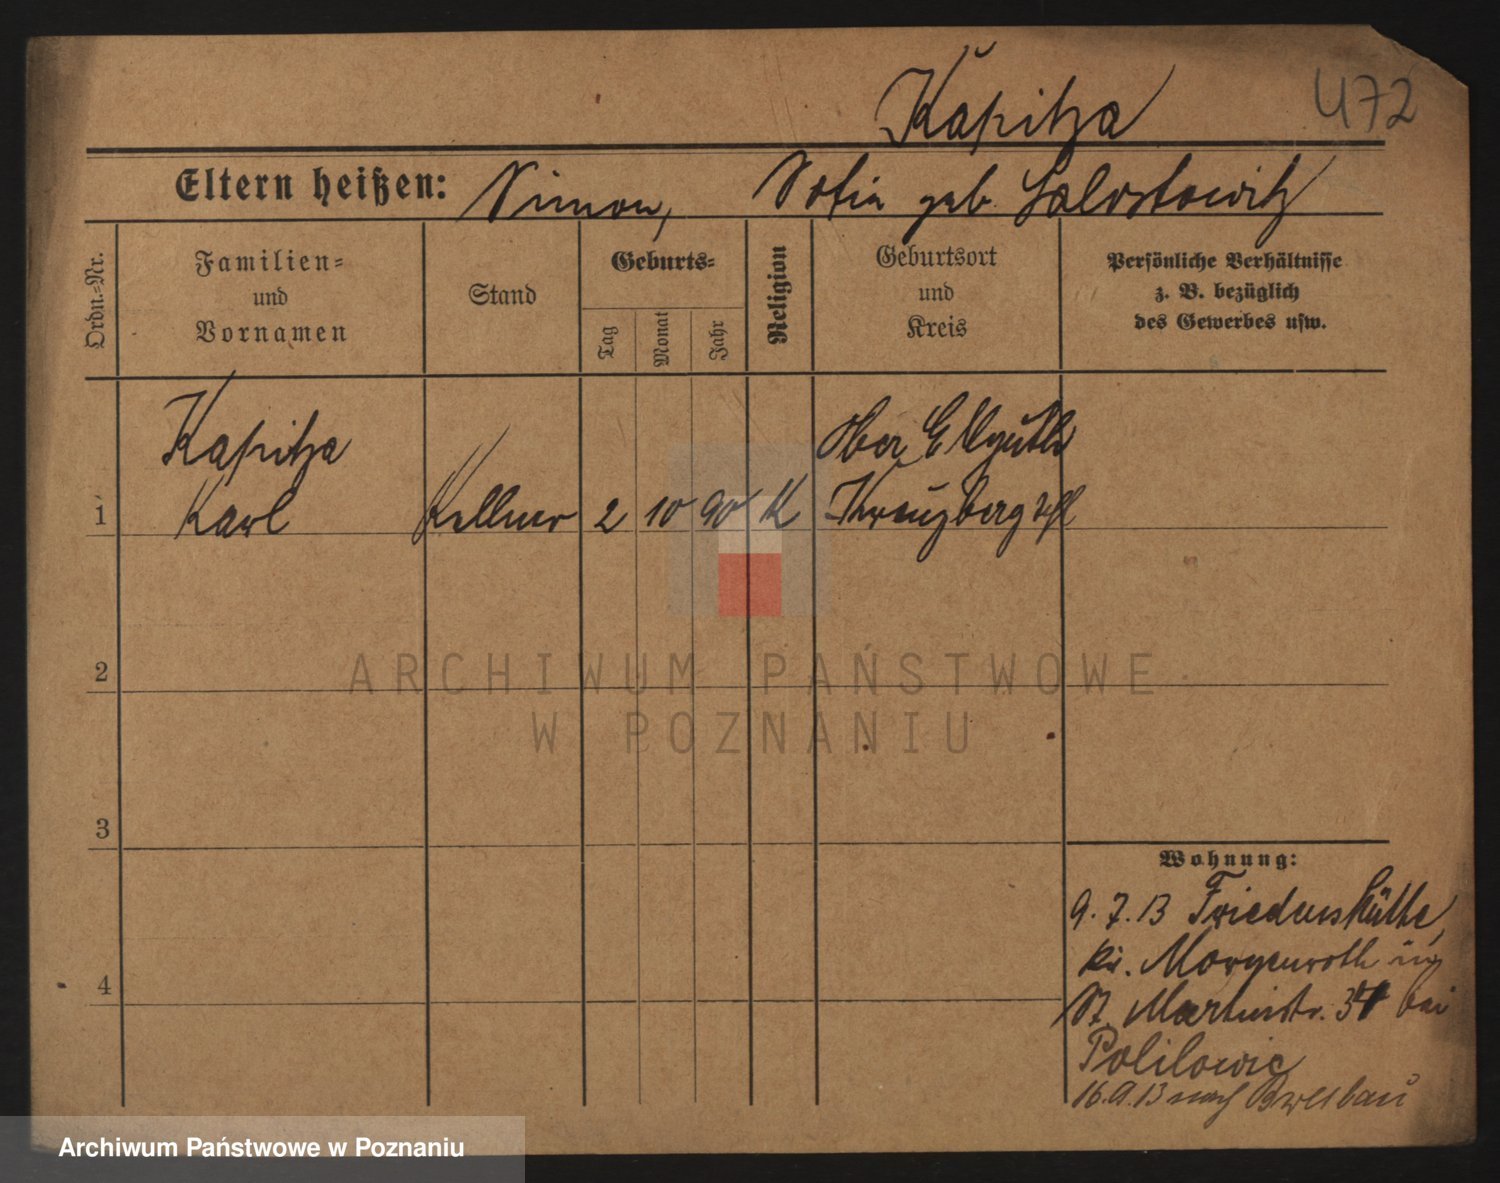 Kapitza
472
Eltern heißen: Simon, Sofia geb. Salostowitz
Ordn.-Nr.
Familien-
und
Vornamen
Stand
Geburts-
Tag
Monat
Jahr
Religion
Geburtsort
und
Kreis
Persönliche Verhältnisse
z. B. bezüglich
des Gewerbes usw.
Kapitza Ober Ellguth
1 Karl Kellner 2 10 90 K Kreuzberg
2
ARCHIWUM PAŃSTWOWE
W POZNANIU
3
Wohnung:
9.7.13 Friedenshütte,
Kr. Morgenroth
4
St. Martinstr. 34 bei
16.9.13 nach Breslau
Archiwum Państwowe w Poznaniu